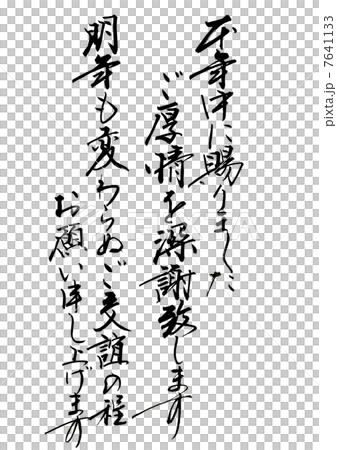 本年中に賜りました
ご厚情を深謝致します
明年も変わらぬご交誼の程
お願い申し上げます
pixta.jp - 7641133